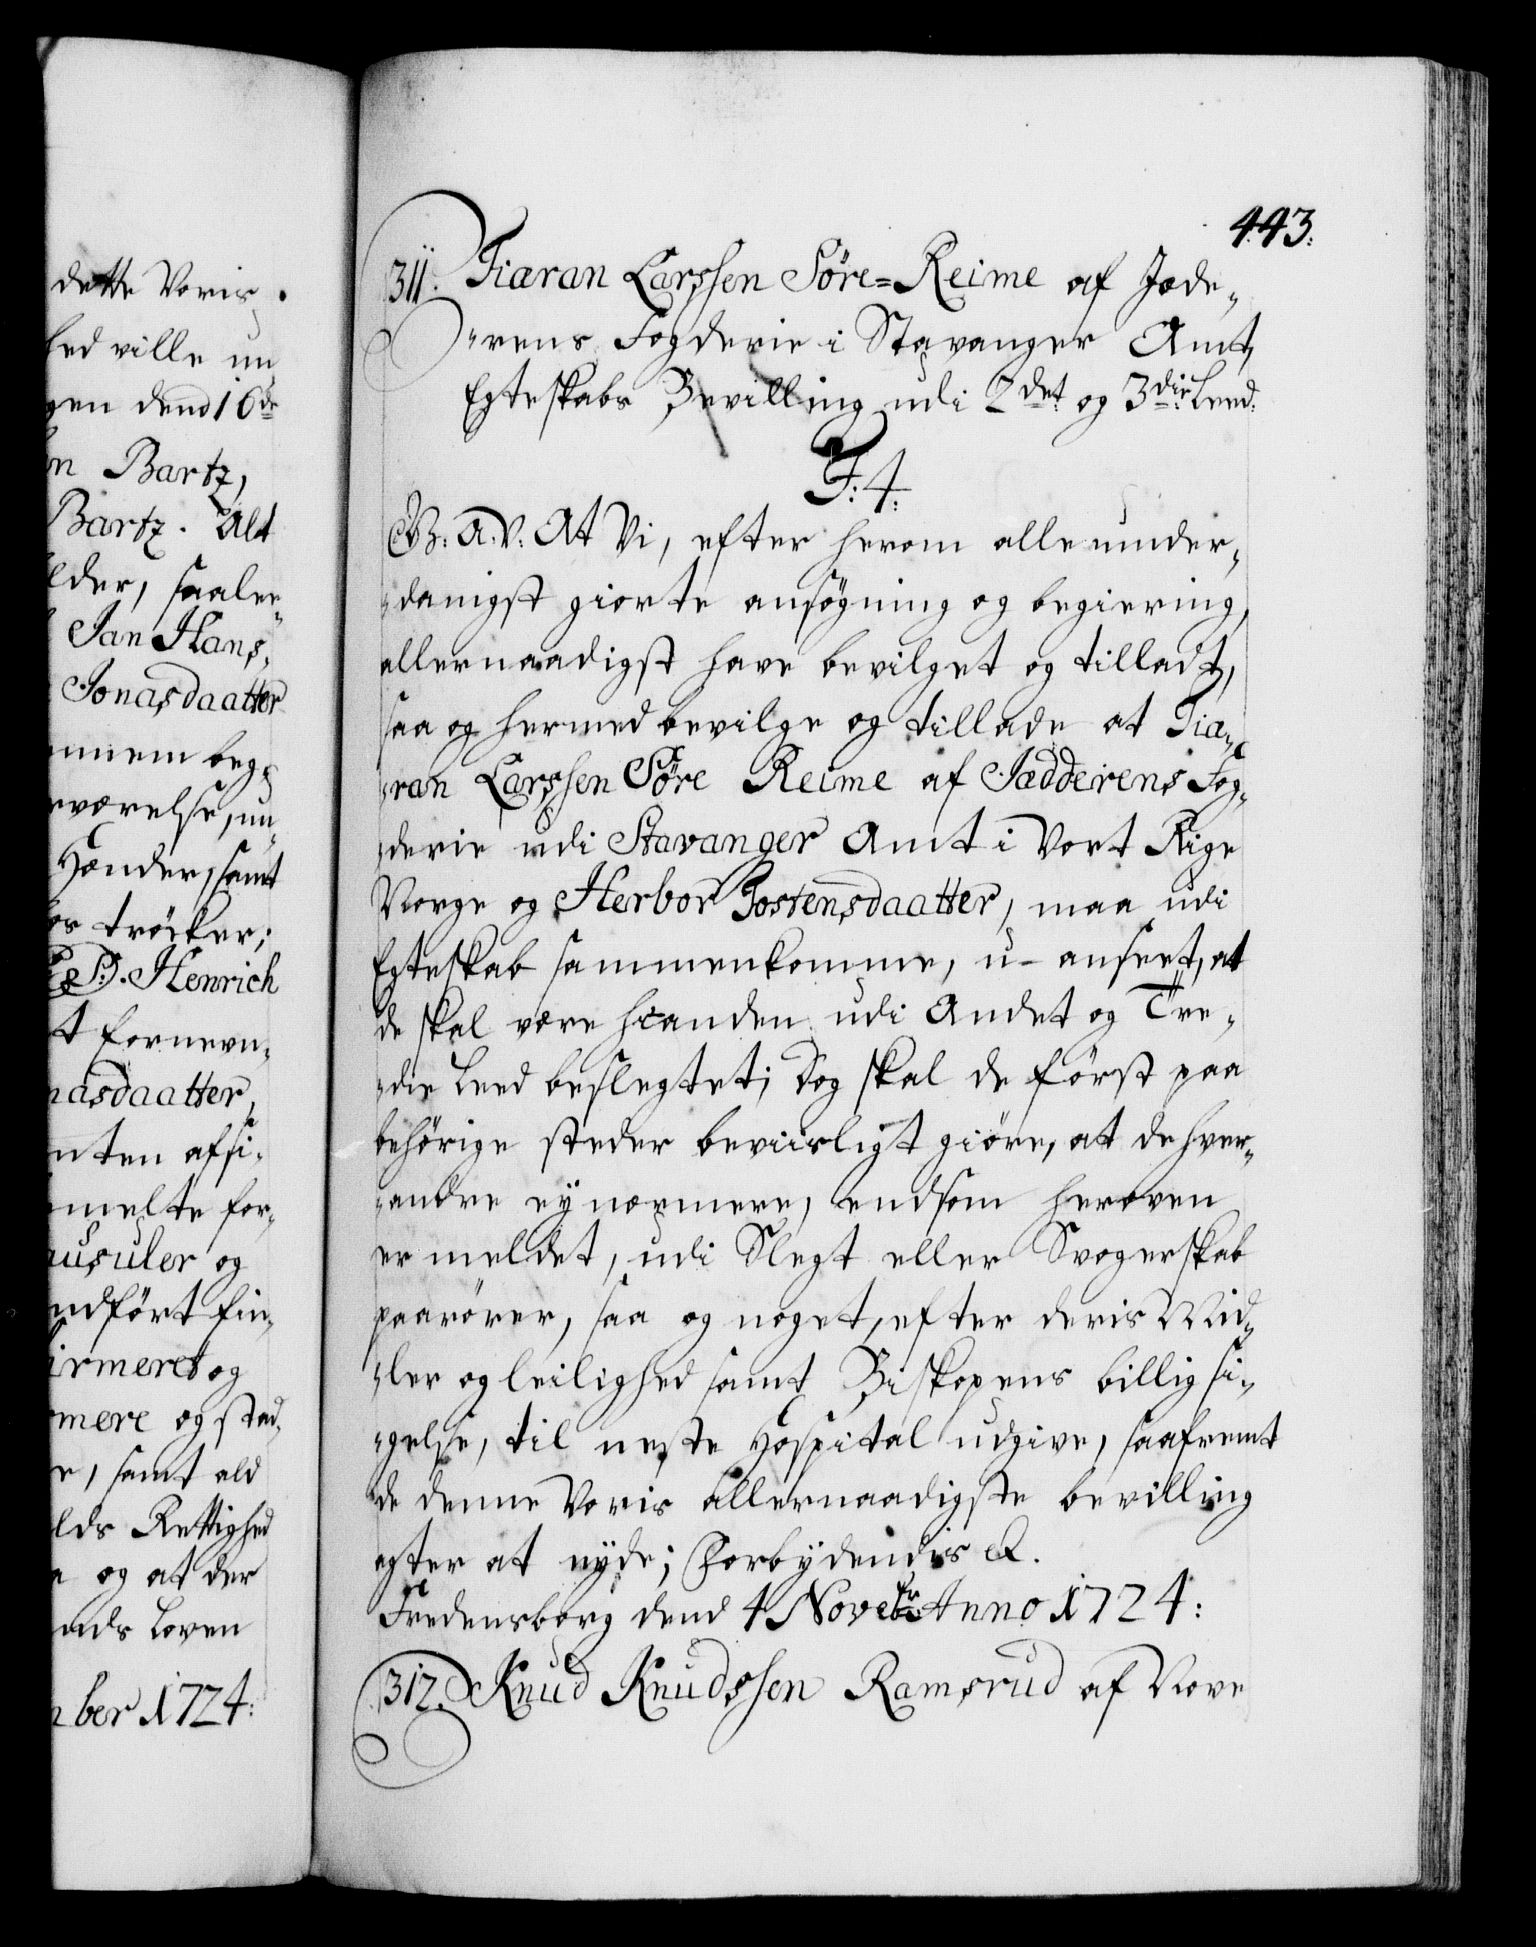 dette Voris
hed ville un
gen dend 16de
Bartz,
Bartz. Alt
lder, saalee„
Jan Hans„
Jonasdaatter
nnem beg„
rværelse, un„
Hænder, samt
os trÿcker;
Henrich
t fornevn„
nasdaatter,
nten afsi„
melte for„
ausuler og
ndført fin„
irmeret og
mere og stad„
e, samt ald
lds Rettighed
og at der
nds Loven
ber 1724:
443:
311. Tiæran Larssen Søre=Reime af Jæde„
„rens Fogderie i Stavanger Amt,
Egteskabs Bevilling udi 2det og 3die Leed:
F: 4.
G: A. V: At Vi, efter herom allerunder„
„danigst giorte ansøgning og begiering,
allernaadigst have bevilget og tilladt,
saa og hermed bevilge og tillade at Tiæ„
„ran Larssen Søre Reime af Jædderens Fog„
„derie udi Stavanger Amt i Vort Rige
Norge og Herbor Tostensdaatter, maa udi
Egteskab sammenkomme, u-anseet, at
de skal være hianden udi Andet og Tre„
„die Leed beslegtet; Dog skal de først paa
behørige steder beviisligt giøre, at de hver„
„andre eÿ nærmere, endsom heroven
er meldet, udi Slegt eller Svogerskab
paarører, saa og noget, efter deris Mid„
„ler og leilighed samt Biskopens billig si„
„gelse, til neste Hospital udgive, saafremt
de denne Voris allernaadigste bevilling
agter at nÿde; Forbÿdendis &.
Fredensborg dend 4 Novebr: Anno 1724:
312. Knud Knudssen Ramsrud af Nore